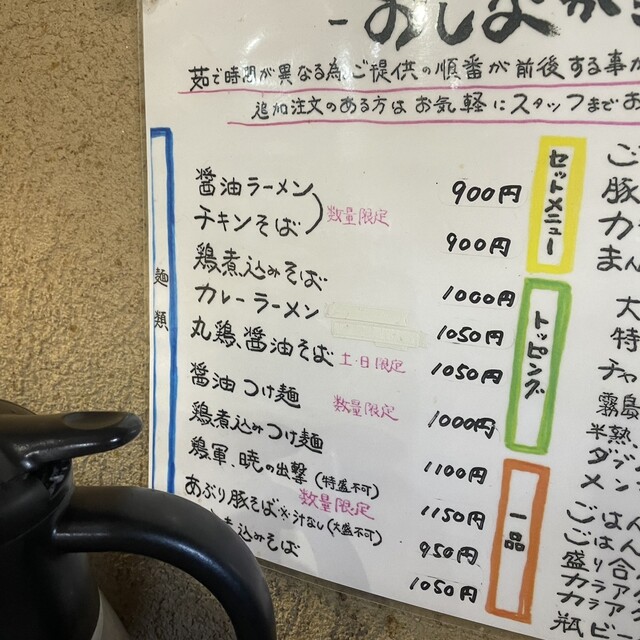 おしながき
茹で時間が異なる為、ご提供の順番が前後する事が
追加注文のある方は お気軽にスタッフまでお
麺類
醤油ラーメン 900円
チキンそば 数量限定 900円
鶏煮込みそば 1000円
カレーラーメン 1050円
丸鶏、醤油そば 土・日限定 1050円
醤油つけ麺 数量限定 1000円
鶏煮込みつけ麺 1100円
鶏軍、暁の出撃 (特盛不可) 1150円
あぶり豚そば ※汁なし(大盛不可) 数量限定 950円
煮込みそば 1050円
セットメニュー
ご
豚
カ
まん
トッピング
大
特
チャ
霧島
半熟
ダブ
メン
一品
ごはん
ごはん
盛り合
カラア
カラア
瓶ビー